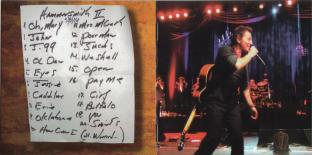 Hammersmith II
1. Oh, Mary
2. John
3. J.99
4. Ol Dan
5. Eyes
6. Jessie
7. Cadillac
8. Erie
9. Oklahoma
10. How Can I
11. Mrs. McGrath
12. Poor Man
13. Jacobs
14. We Shall
15. Open
16. Pay Me
18. Buffalo
19. You
20. Saints